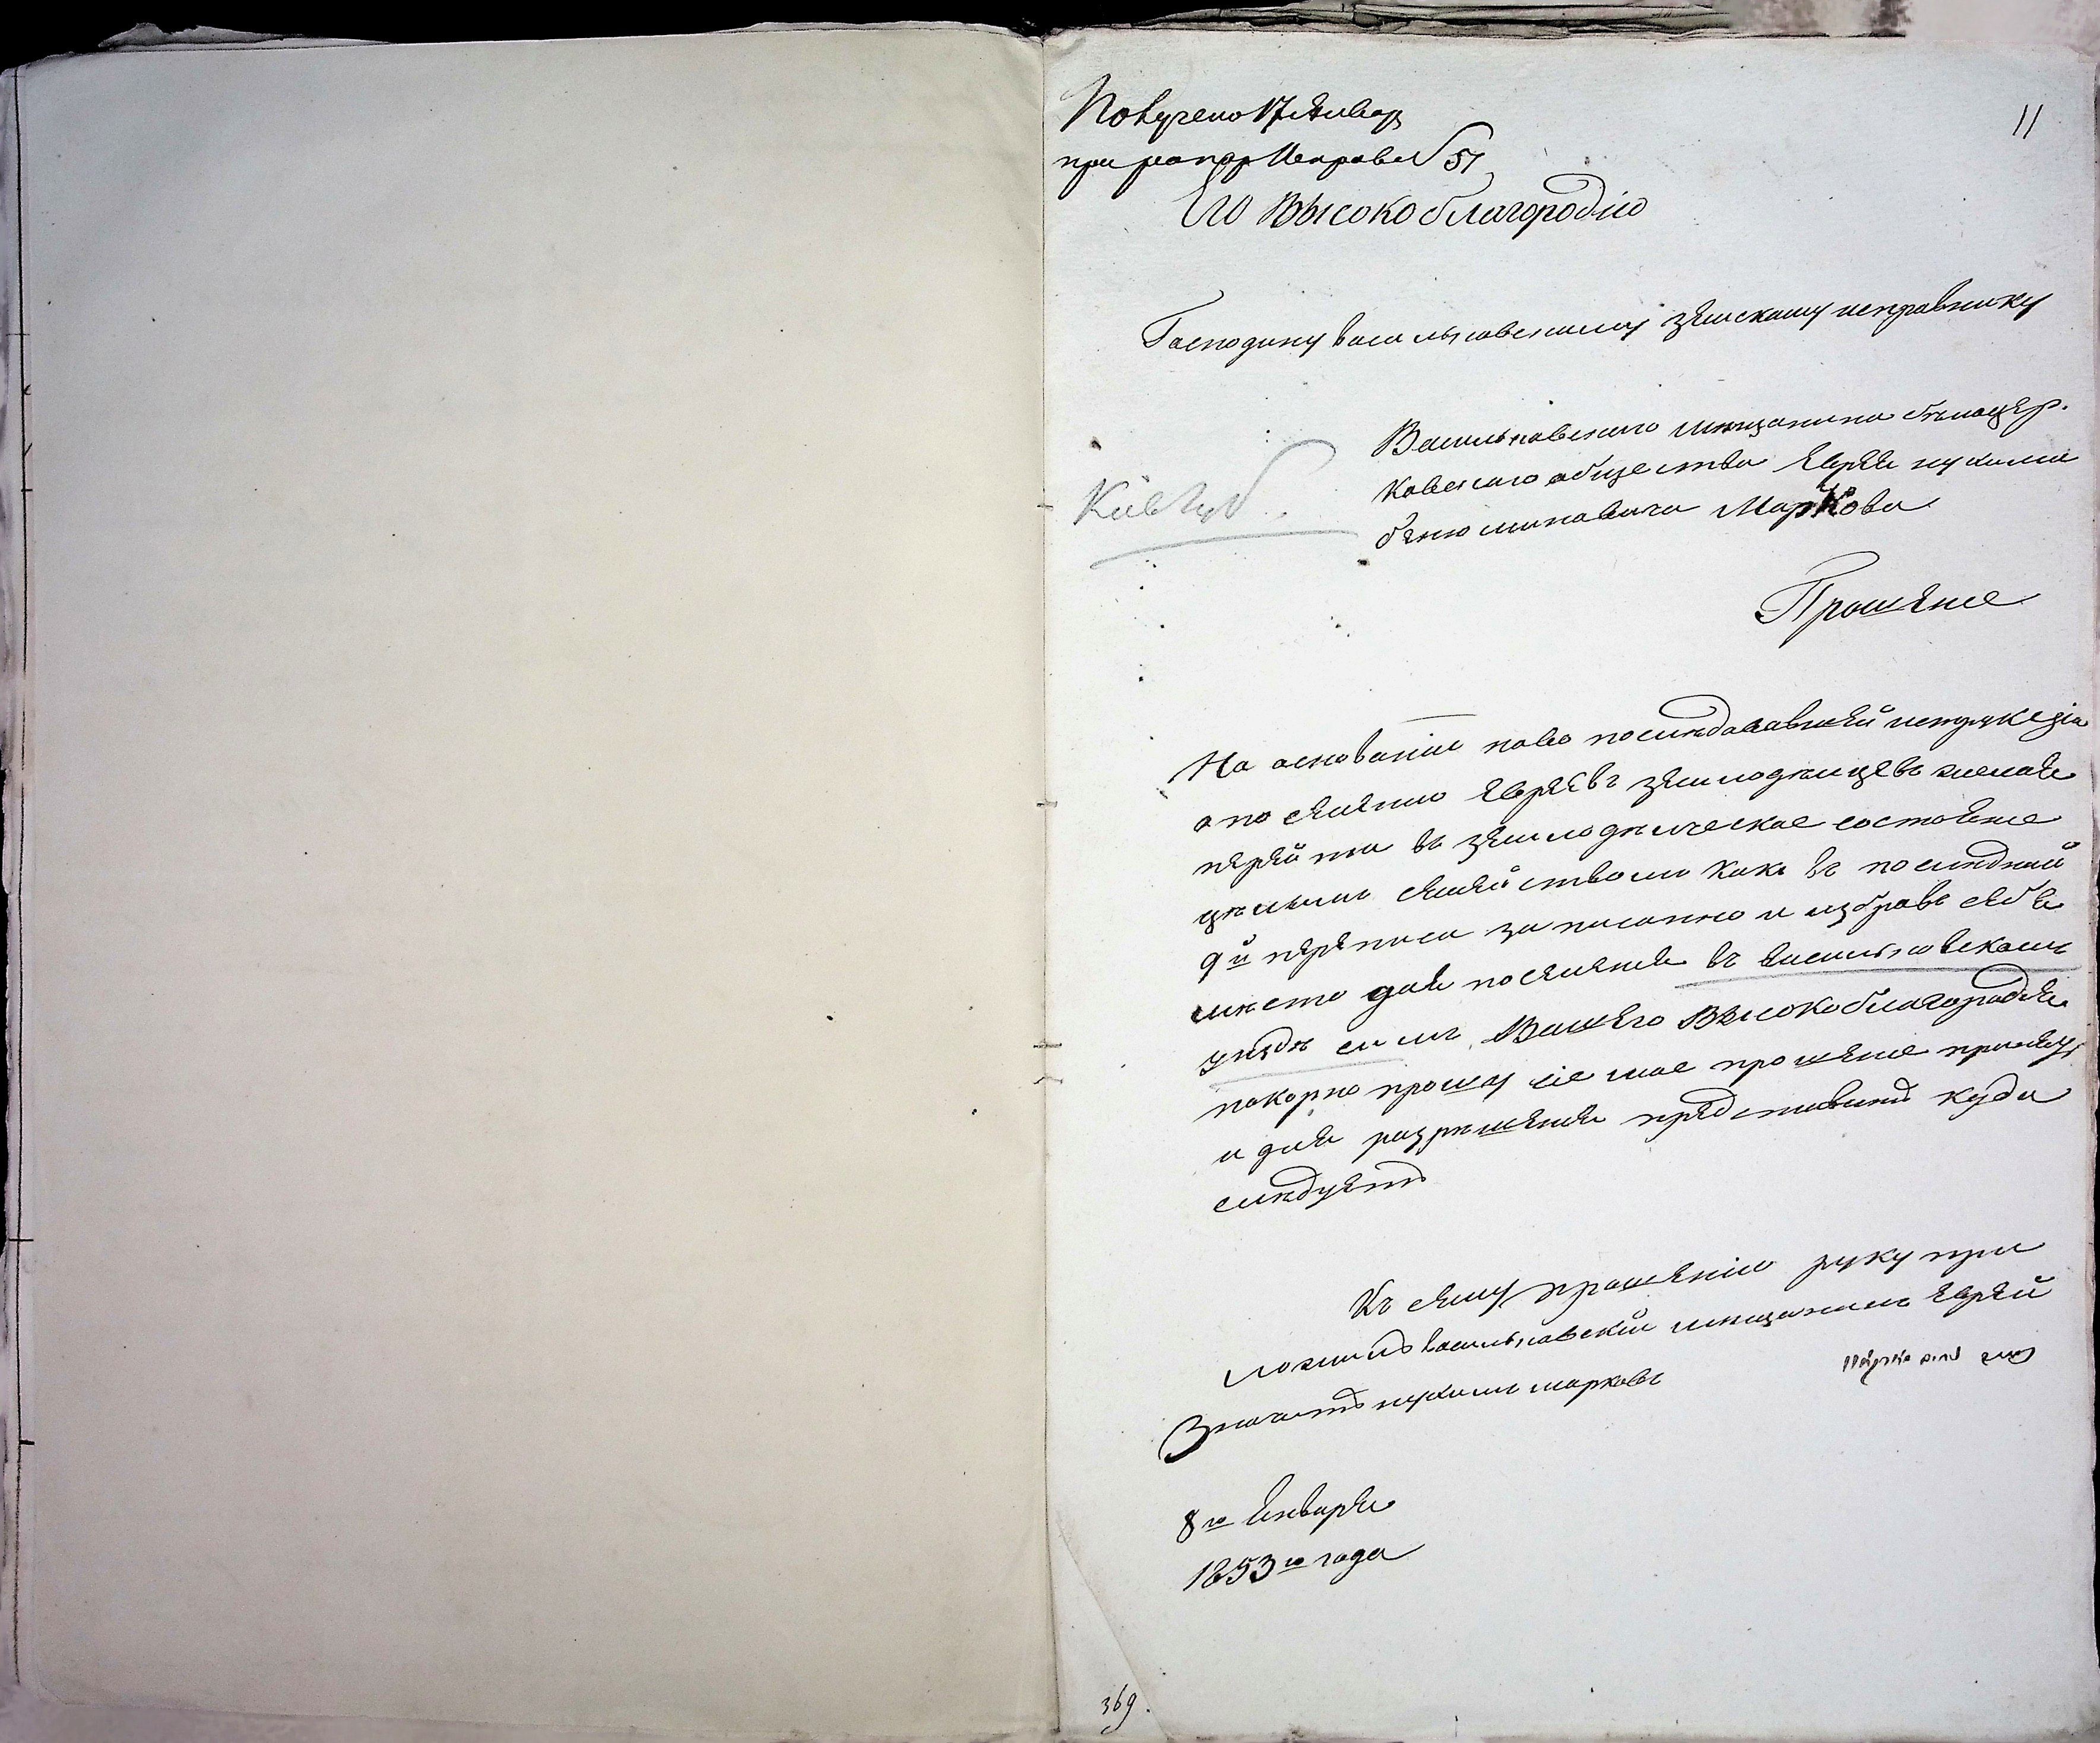 11
Получено 17 Январ
при рапор Исправ № 51
Его Высокоблагородію
Господину васильковскому земскому исправнику
Васильковскаго мѣщанина бѣлоцер.
ковскаго общества Еврея нухима
бенюминовича Маркова
Кіев Губ.
Прошение
На основаніи ново последовавшей инструкціи
о поселению Евреевъ земледѣлцевъ желая
перейти въ земледѣлческое состояние
цѣлымъ семействомъ какъ въ последней
9й переписи записано и избравъ себѣ
мѣсто для поселения въ васильковскомъ
уѣздѣ симъ Вашего Высокоблагородия
покорно прошу сіе мое прошение принять
и для разрѣшения представить куда
слѣдуетъ
Къ сему прошенію руку при
ложилъ васильковскій мѣщанинъ Еврей
Значитъ нухимъ марковъ
8го Января
1853го года
369.